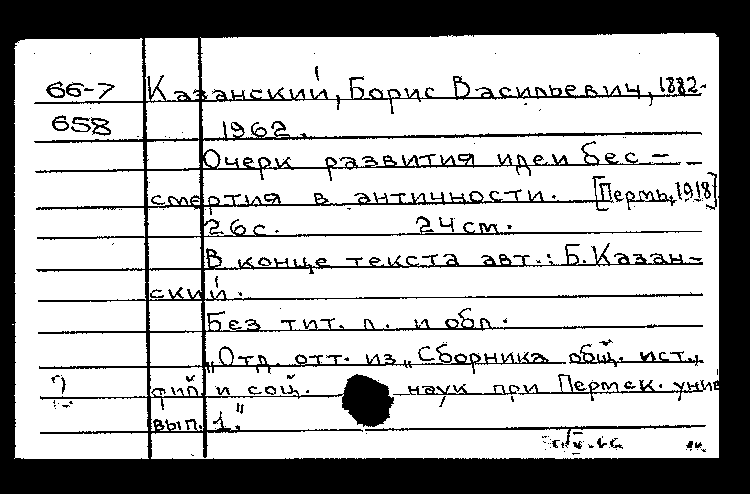 66-7 Казанский, Борис Васильевич, 1882-
658 1962.
Очерк развития идеи бес-
смертия в античности. [Пермь, 1918]
26с. 24 см.
В конце текста авт.: Б. Казан-
ский.
Без тит. л. и обл.
"Отд. отт. из "Сборника общ. ист.,
? фил. и соц. наук при Пермск. унив
вып. 1."